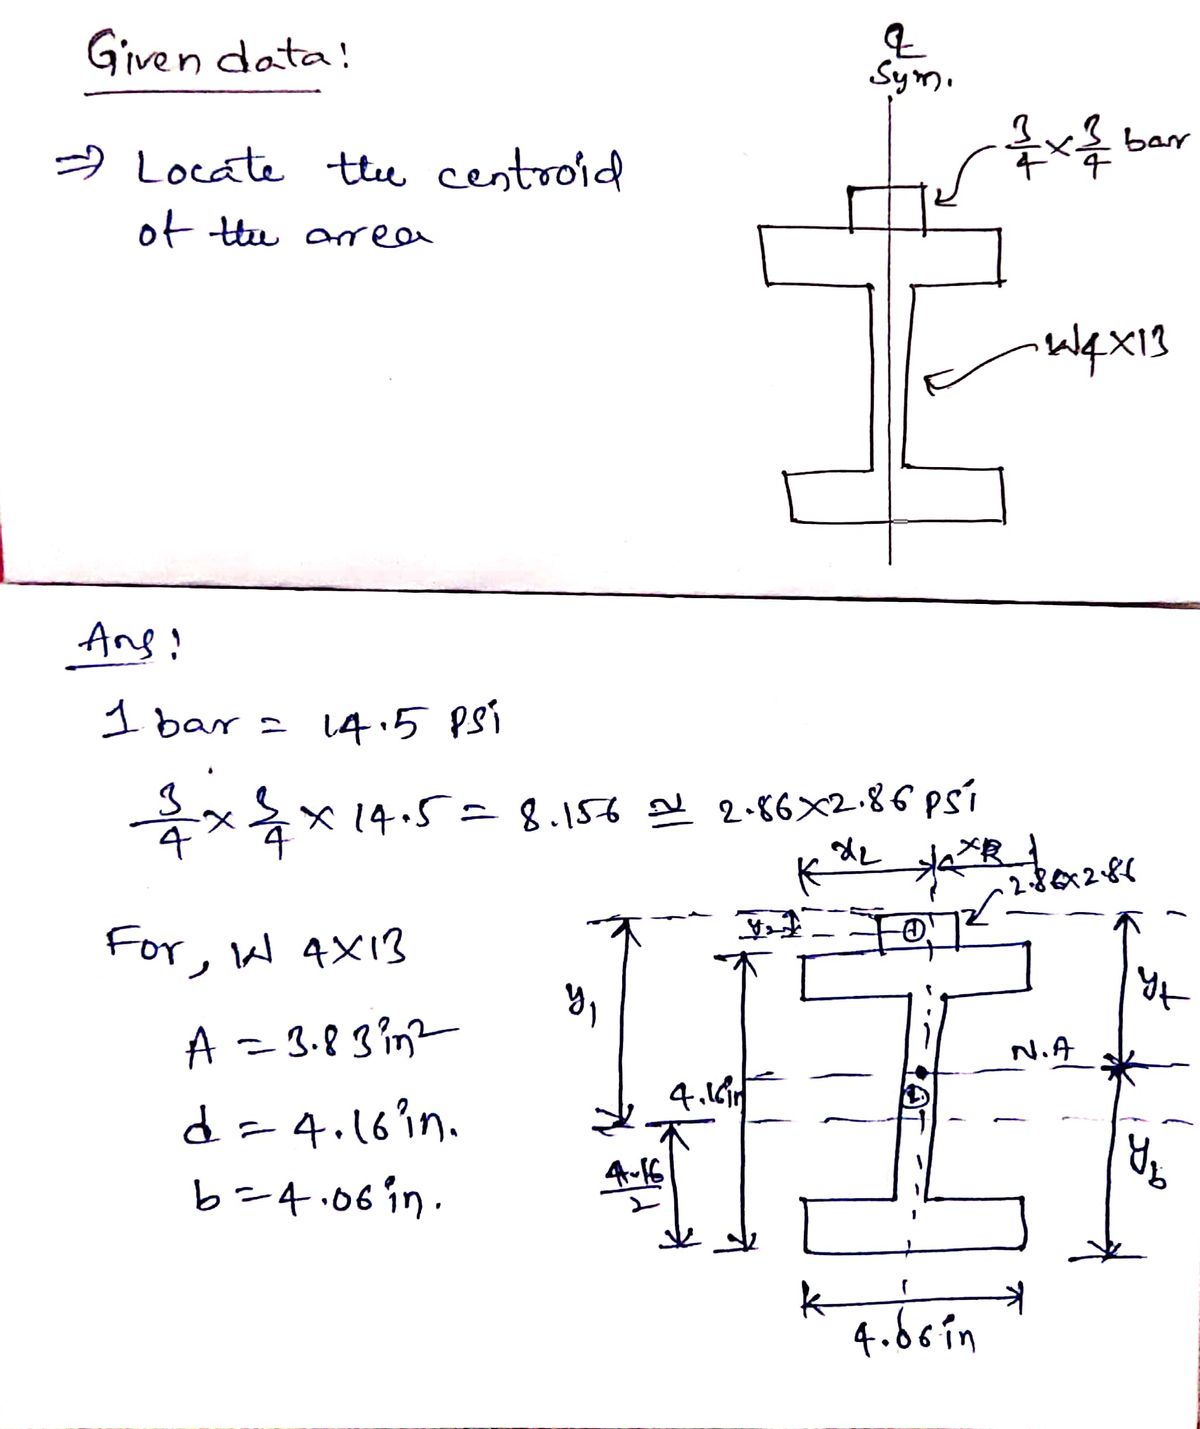 Given data!
⇒ Locate the centroid
of the area
℄
Sym.
3/4 × 3/4 bar
W4×13
Ans!
1 bar = 14.5 PSi
3/4 × 3/4 × 14.5 = 8.156 ≅ 2.86×2.86 PSi
For, W 4×13
A = 3.83 in²
d = 4.16 in.
b = 4.06 in.
xL
xR
2.86×2.86
y2
①
y1
yt
N.A
4.16in
②
4.16/2
yb
4.06in